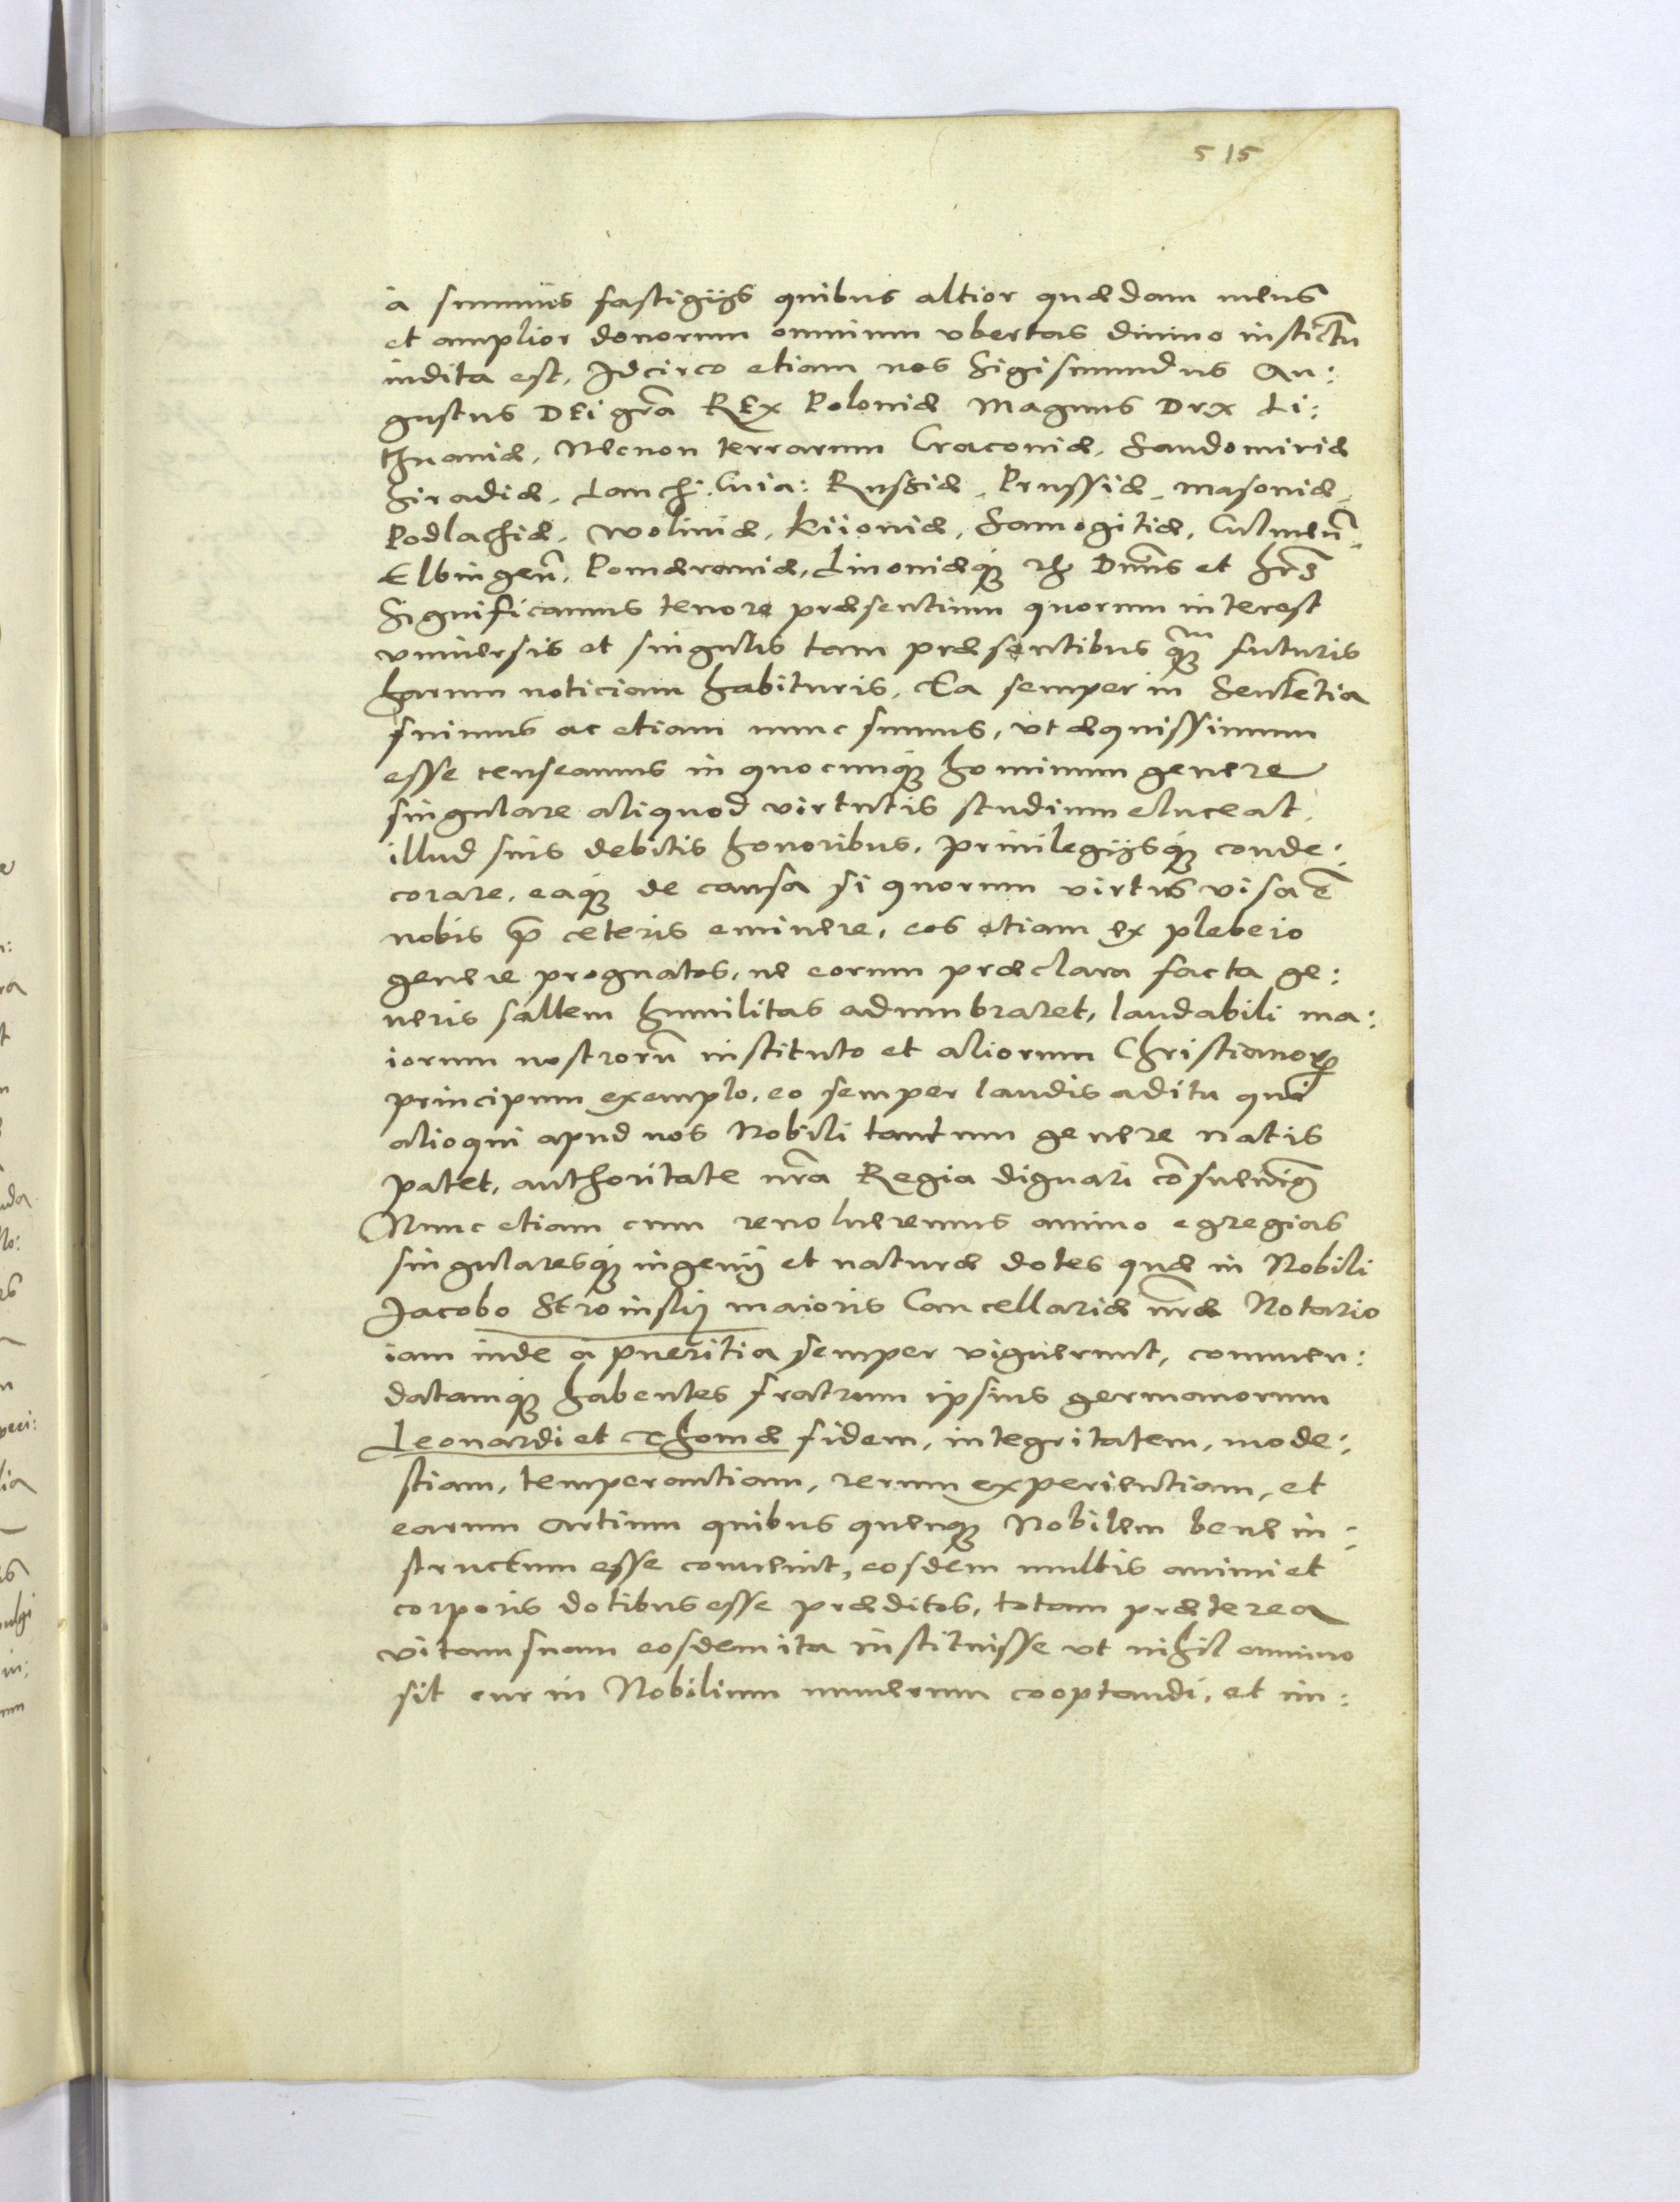 515
à summis fastigijs quibus altior quædam mens
et amplior donorum omnium vbertas diuino instictu
indita est, Idcirco etiam nos Sigismundus Au:
gustus DEi gr̃a REx Poloniæ Magnus Dux Li:
thuaniæ, Necnon terrarum Cracouiæ, Sandomiriæ
Siradiæ, Lanch: Cuia: Russiæ, Prussiæ, Masouiæ,
Podlachiæ, Woliniæ, Kiiouiæ, Samogitiæ, Culmeñ,
Elbingeñ, Pomæraniæ, Liuoniæq́ꝫ Dñus et hr̃es
Significamus tenore præsentium quorum interest
vniuersis et singulis tam præsentibus qꝫm futuris
harum noticiam habituris, Ea semper in Sententia
fuimus ac etiam nunc sumus, vt æquissimum
esse censeamus in quocunq́ꝫ hominum genere
singulare aliquod virtutis studium eluceat,
illud suis debitis honoribus, priuilegijsq́ꝫ conde:
corare, eaq́ꝫ de causa si quorum virtus visa ẽ
nobis p̃ ceteris eminere, eos etiam ex plebeio
genere prognatos, ne eorum præclara facta ge:
neris saltem humilitas adumbraret, laudabili ma:
iorum nostrorũ instituto et aliorum Christianoꝝ
principum exemplo, eo semper laudis aditu qui
alioqui apud nos Nobili tantum genere natis
patet, authoritate nr̃a Regia dignari cõsueuimꝰ
Nunc etiam cum reuolueremus animo egregias
singularesq́ꝫ ingenij et naturæ dotes quæ in Nobili
Jacobo Stroinskij maioris Cancellariæ nr̃æ Notario
iam inde à pueritia semper viguerunt, commen:
datamq́ꝫ habentes fratrum ipsius germanorum
Leonardi et Thomæ fidem, integritatem, mode:
stiam, temperantiam, rerum experientiam, et
earum artium quibus quenqꝫ Nobilem bene in:
structum esse conuenit, eosdem multis animi et
corporis dotibus esse præditos, totam præterea
vitam suam eosdem ita instituisse vt nihil omnino
sit cur in Nobilium numerum cooptandi, et im: